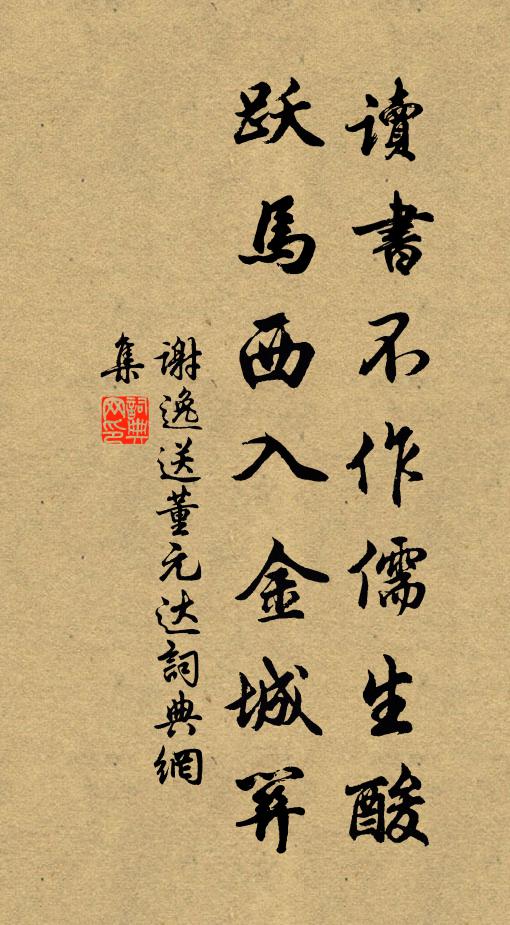 讀書不作儒生酸
跃馬西入金城關
謝逸送董元达詞典網
集
詞典
网印